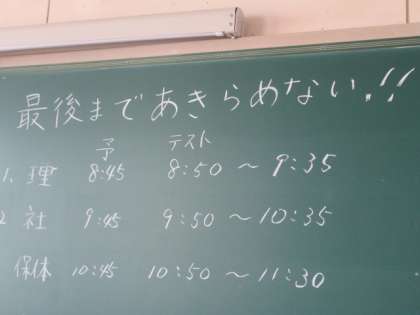 最後まであきらめない!!
予 テスト
1. 理 8:45 8:50 〜 9:35
2 社 9:45 9:50 〜 10:35
保体 10:45 10:50 〜 11:30